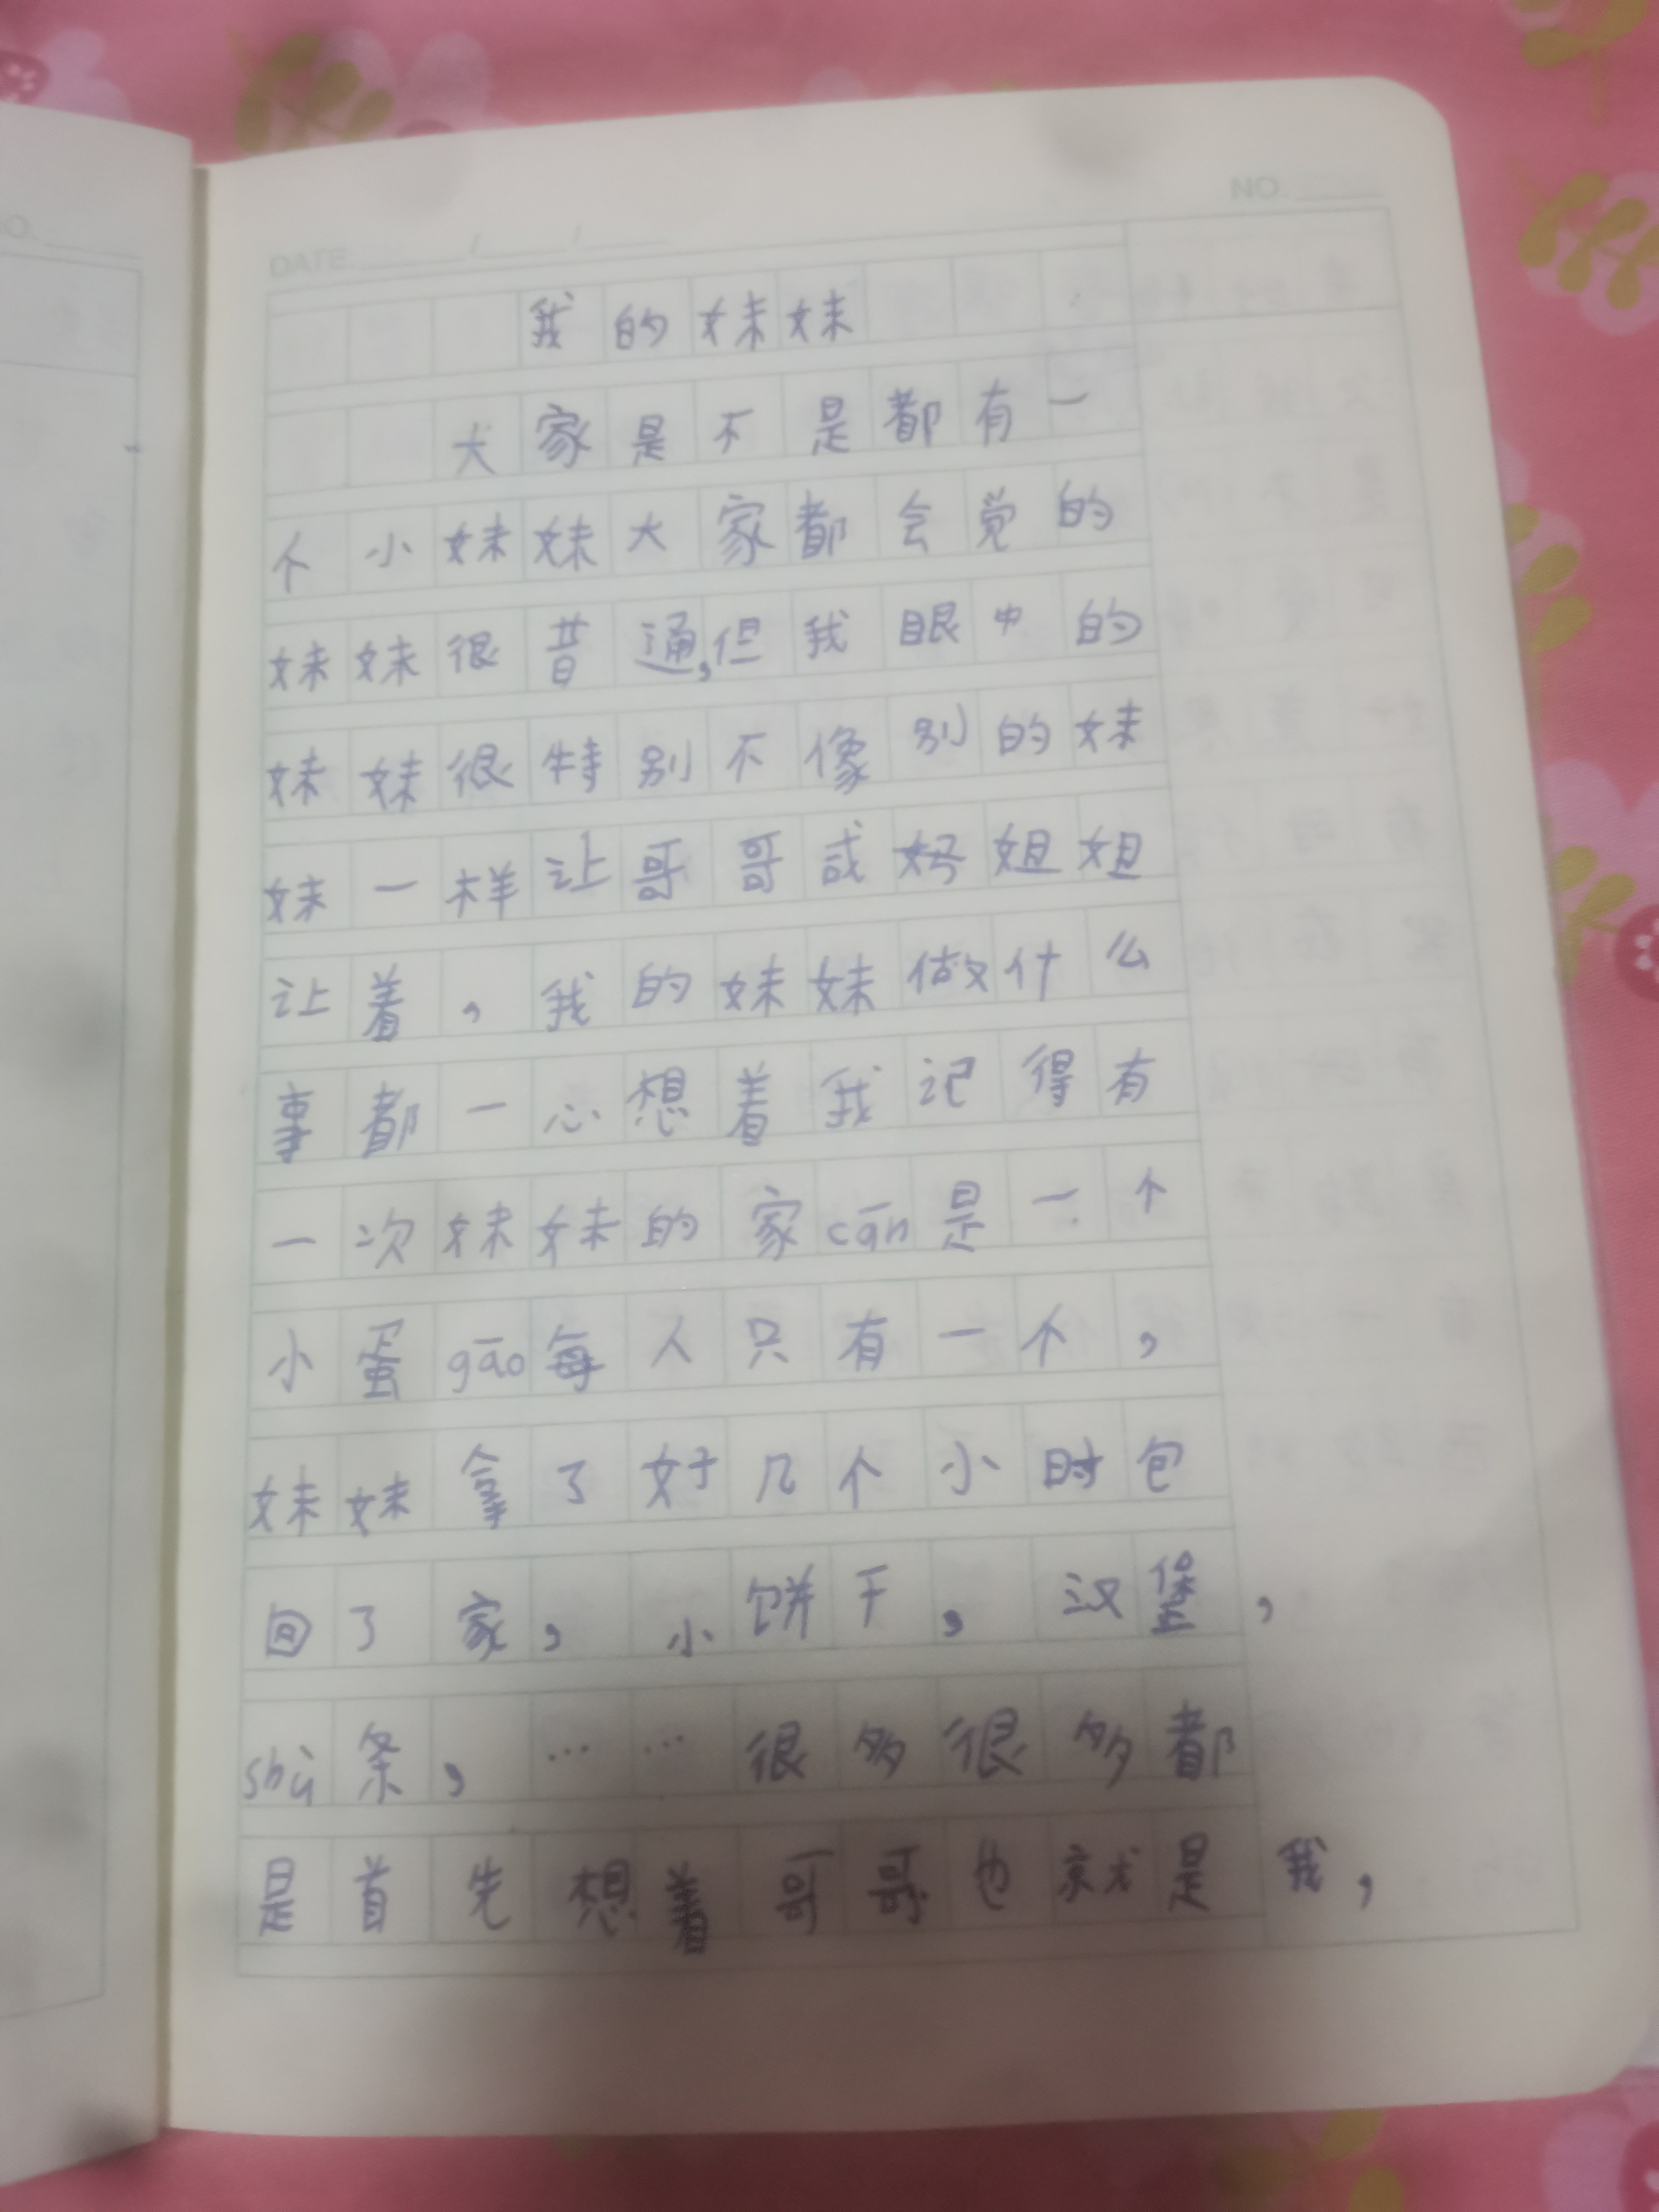 NO.
DATE: / /
我的妹妹
大家是不是都有一
个小妹妹大家都会觉的
妹妹很昔通,但我眼中的
妹妹很特别不像别的妹
妹一样让哥哥或妈姐姐
让着,我的妹妹做什么
事都一心想着我记得有
一次妹妹的家cān是一个
小蛋gāo每人只有一个,
妹妹拿了好几个小时包
回了家,小饼干,汉堡,
shǔ条,……很多很多都
是首先想着哥哥也就是我,